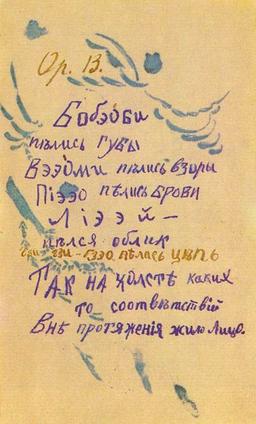 Ор. 13.
Бобэоби
пѣлись губы
Вээоми пѣлись взоры
Піээо пѣлись брови
Ліэээй —
пѣлся облик
Гзи-гзи-гзэо пѣлась цѣпь
Так на холстѣ каких
то соотвѣтствій
Внѣ протяженія жило Лицо.